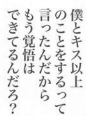 僕とキス以上
のことをするって
言ったんだから
もう覚悟は
できてるんだろ?